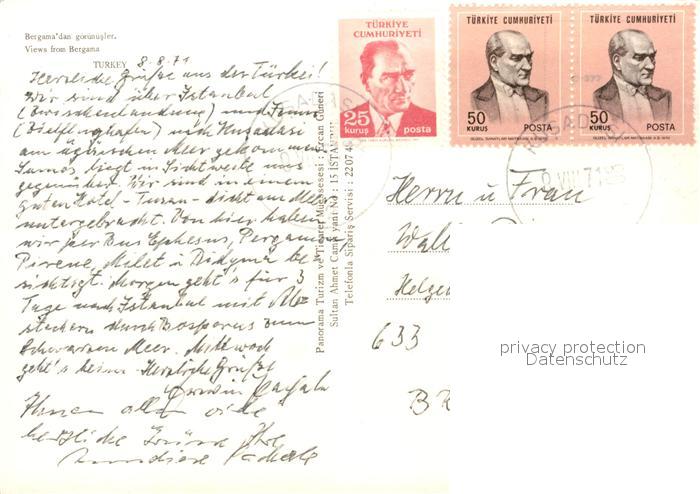 Bergama'dan görünüşler.
Views from Bergama
TURKEY 8.8.71
Herzliche Grüße aus der Türkei!
Wir sind über Istanbul
(Zwischenlandung) und Izmir
nach Kusadasi
am ägäischen Meer gekommen.
Samos liegt in Sichtweite uns
gegenüber. Wir sind in einem
guten Hotel - Tusan - dicht am Meer
untergebracht. Von hier haben
wir per Bus Ephesus, Pergamon,
Priene, Milet u Didyma be
sichtigt. Morgen geht's für 3
Tage nach Istanbul mit
durch Bosporus zum
Schwarzen Meer. Mittwoch
geht's heim. Herzliche Grüße
Erwin
Ihnen allen viele
herzliche Grüße Ihre
Panorama Turizm ve Ticaret Müessesesi : Ercan Güneri
Sultan Ahmet Cami yani No : 15 İSTANBUL
Telefonla Sipariş Servisi : 22 07
TÜRKİYE
CUMHURİYETİ
25
kuruş posta
TÜRKİYE CUMHURİYETİ
50
KURUŞ POSTA
TÜRKİYE CUMHURİYETİ
50
KURUŞ POSTA
Herrn u Frau
633
privacy protection
Datenschutz